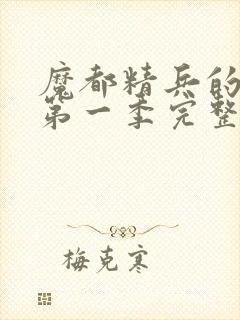 魔都精兵的
第一季完整
梅克寒